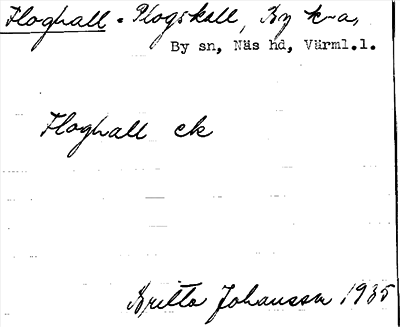 Floghall - Plogskall, By k-a,
By sn, Näs hd, Värml.l.
Floghall ck
Britta Johansson 1935